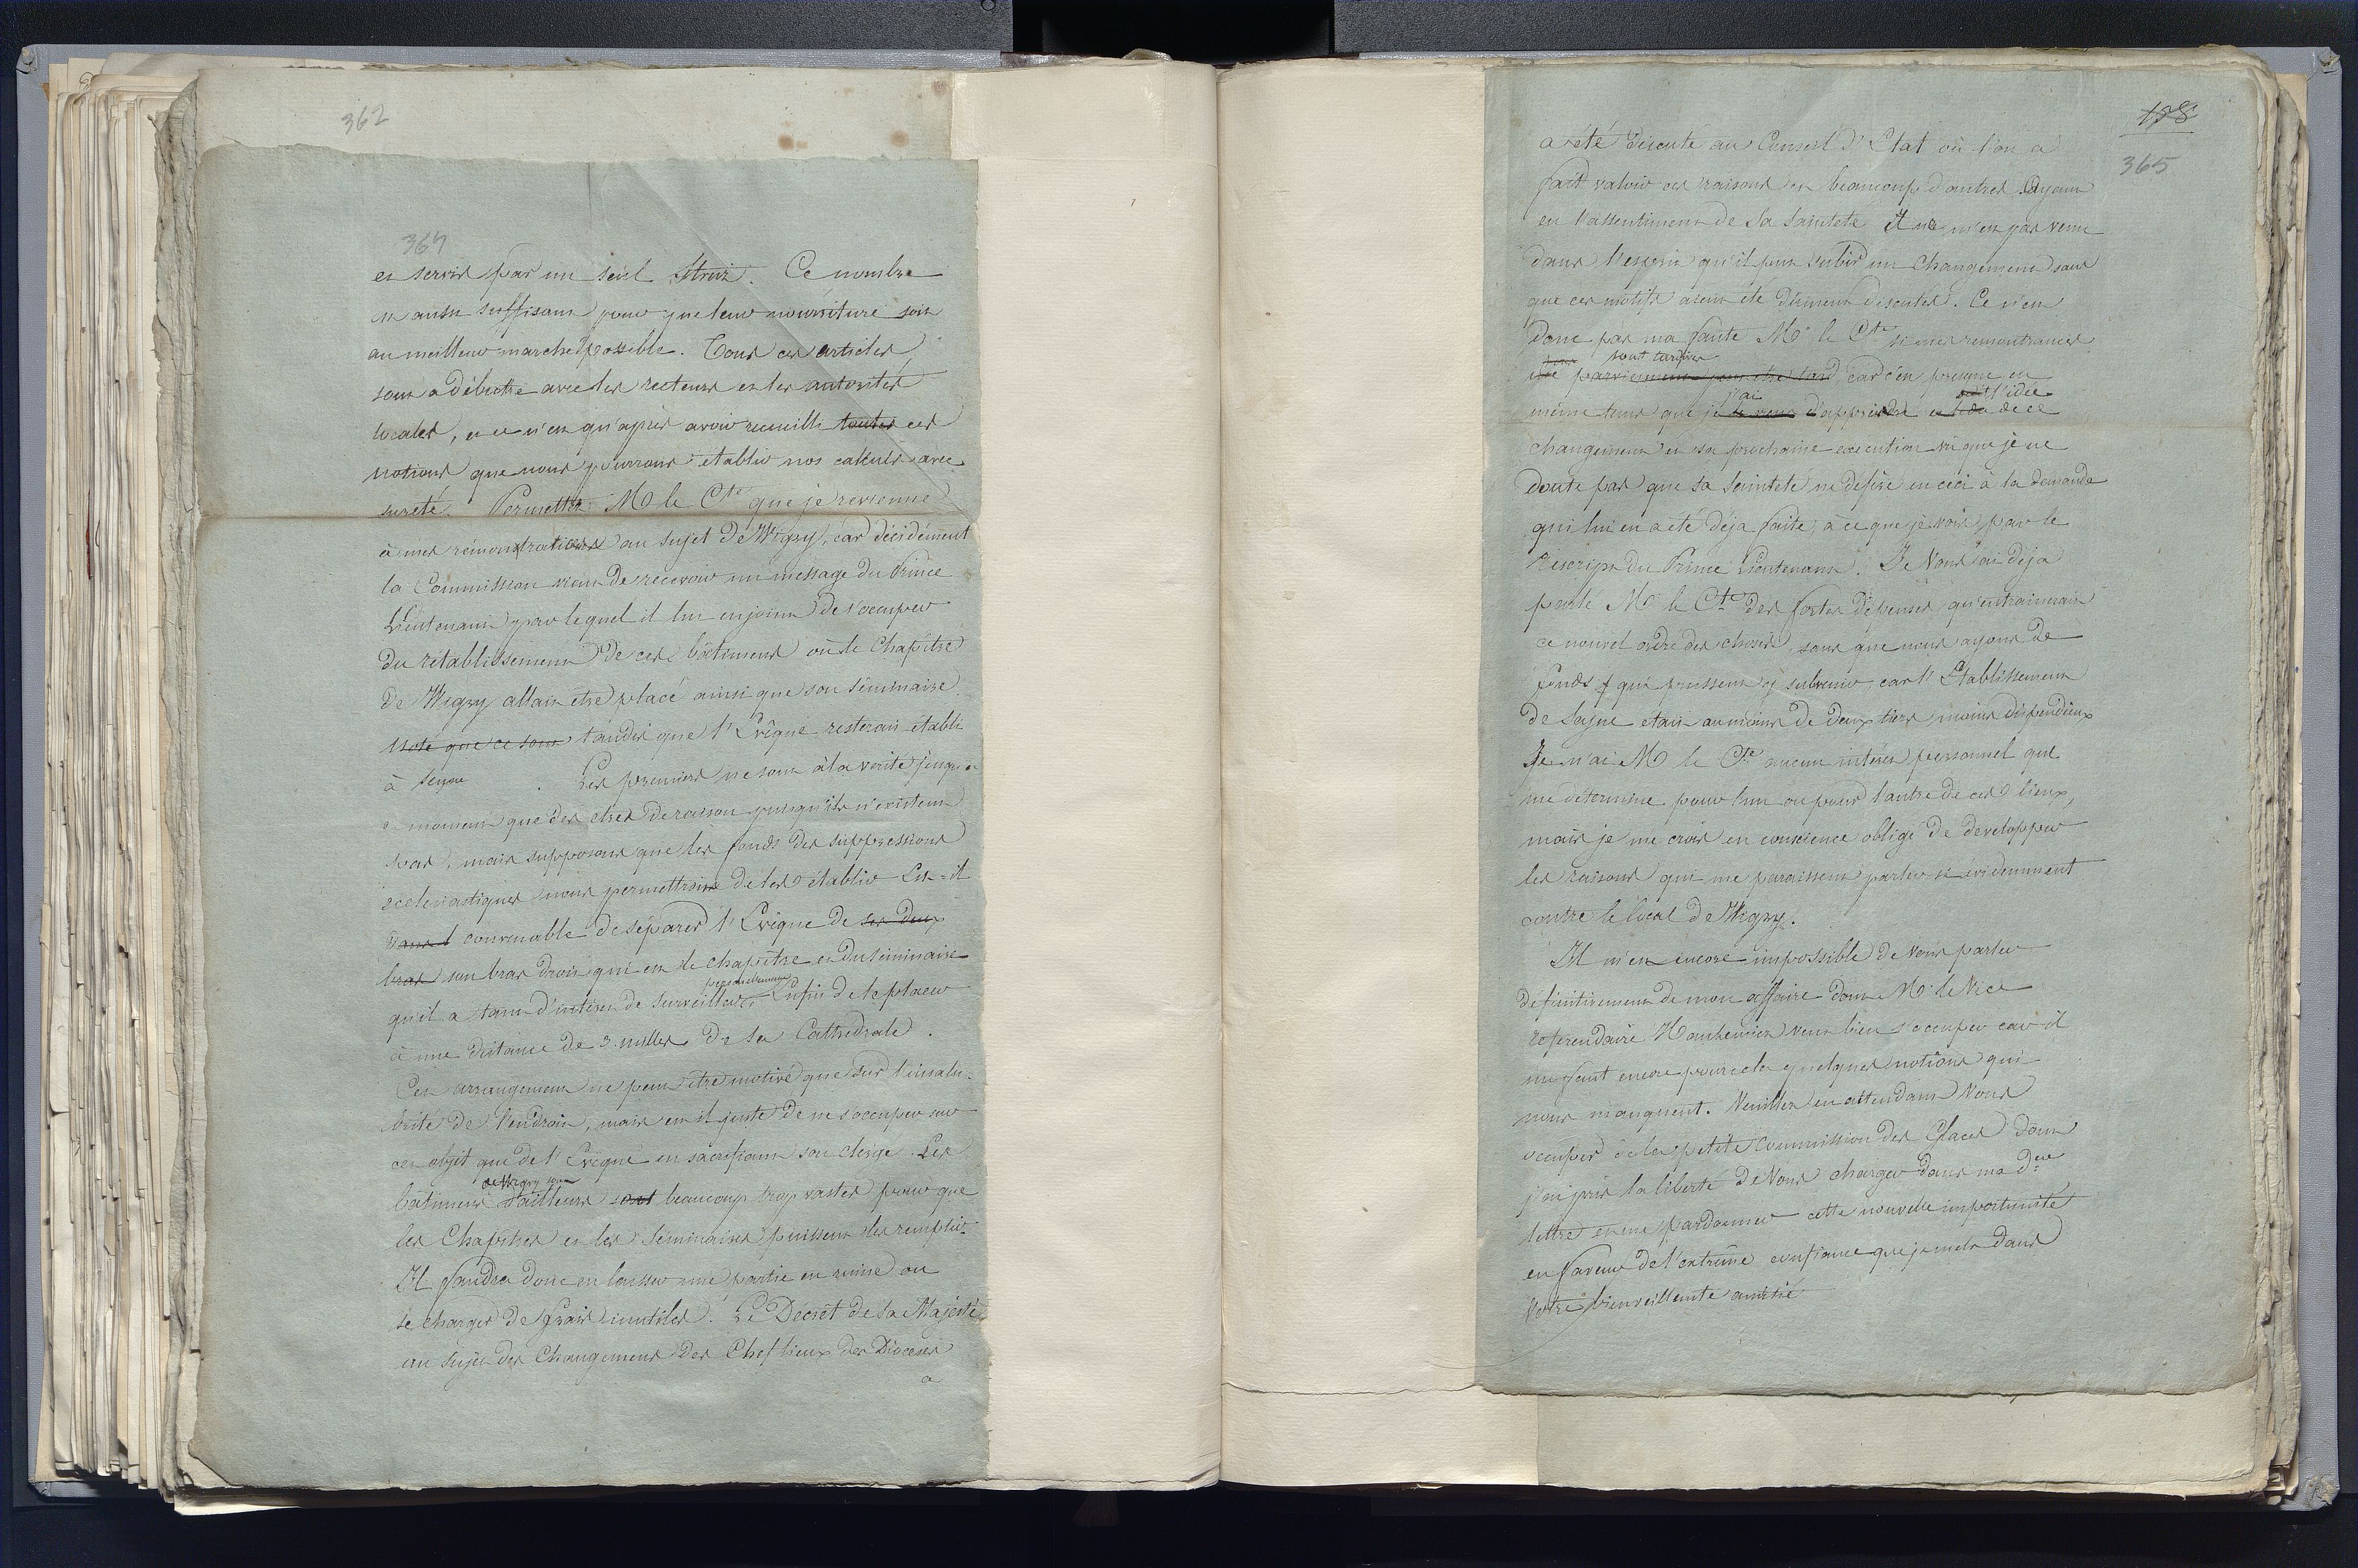 362
364
et servis par un seul Struz. Ce nombre
est aussi suffisant pour que leur nourriture soit
au meilleur marché possible. Tous ces articles
sont a débattre avec les recteurs et les autorités
locales, et ce n'est qu'après avoir recueilli toutes ces
notions que nous pourrons établir nos calculs avec
sureté. Permettez M le Cte que je revienne
à mes rémonstrances au sujet de Wigry, car décidément
la Commission vient de recevoir un message du Prince
Lieutenant par lequel il lui enjoint de s'occuper
du rétablissement de ces bâtimens où le Chapitre
de Wigry allait etre placé ainsi que son séminaire
Noté que ce sont tandis que l'Evêque resterait etabli
à Seyne. Les premiers ne sont à la verité jusqu'a
ce moment que des etres de raison puisqu'ils n'existent
pas, mais supposons que les fonds des suppressions
ecclesiastiques nous permettroient de les établir Est-il
convenable de séparer l'Evêque de ses deux
bras son bras droit qui est le chapitre et du séminaire
personellement
qu'il a tant d'interet de surveiller. Enfin de le placer
à une distance de 3. milles de sa Cathedrale.
Cet arrangement ne peut etre motivé que sur l'insalu-
brité de l'endroit, mais est il juste de ne s'occuper sur
cet objet que de l'Evêque en sacrifiant son clergé. Les
de Wigry sont
bâtimens d'ailleurs sont beaucoup trop vastes pour que
les Chapitres et les Séminaires puissent les remplir.
Il faudra donc en laisser une partie en ruine ou
se charger de frais inutiles. Le Decrêt de Sa Majesté
au sujet des Changemens des Chef lieux des Dioceses
a
178
365
a été discuté au Conseil d'Etat où l'on a
fait valoir ces raisons et beaucoup d'autres ayant
eu l'assentiment de Sa Sainteté Il ne m'est pas venu
dans l'esprit qu'il put subir un changement sans
que ces motifs aient été dûment discutés. Ce n'est
donc pas ma faute Mr le Cte si mes remontrances
sont tardives
parviennent peut etre tard, car c'en presque en
j'ai soit l'idée
même tems que je le viens d'apprendre et l'idée de ce
changement et sa prochaine execution vu que je ne
doute pas que Sa Sainteté ne défère en ceci à la demande
qui lui en a eté déja faite, à ce que je vois, par le
Rescript du Prince Lieutenant. Je Vous ai déja
parlé Mr le Cte des fortes dépenses qu'entrainerait
ce nouvel ordre des choses, sans que nous ayons de
fonds qui puissent y subvenir, car l'Etablissement
de Sejne était au moins de deux tiers moins dispendieux
Je n'ai M le Cte aucun intérêt personnel qui
me détermine pour l'un ou pour l'autre de ces lieux,
mais je me crois en conscience obligé de developper
les raisons qui me paraissent parler si evidemment
contre le local de Wigry.
Il m'est encore impossible de Vous parler
définitivement de mon affaire dont Mr le Vice
referendaire Hankiewicz veut bien s'occuper car il
me faut encore pour cela quelques notions qui
nous manquent. Veuillez en attendant Vous
occuper de la petite commission des Glaces dont
j'ai pris la liberté de Vous charger dans ma dere
lettre et me pardonner cette nouvelle importunité
en faveur de l'extrême confiance que je mets dans
Votre bienveillante amitié